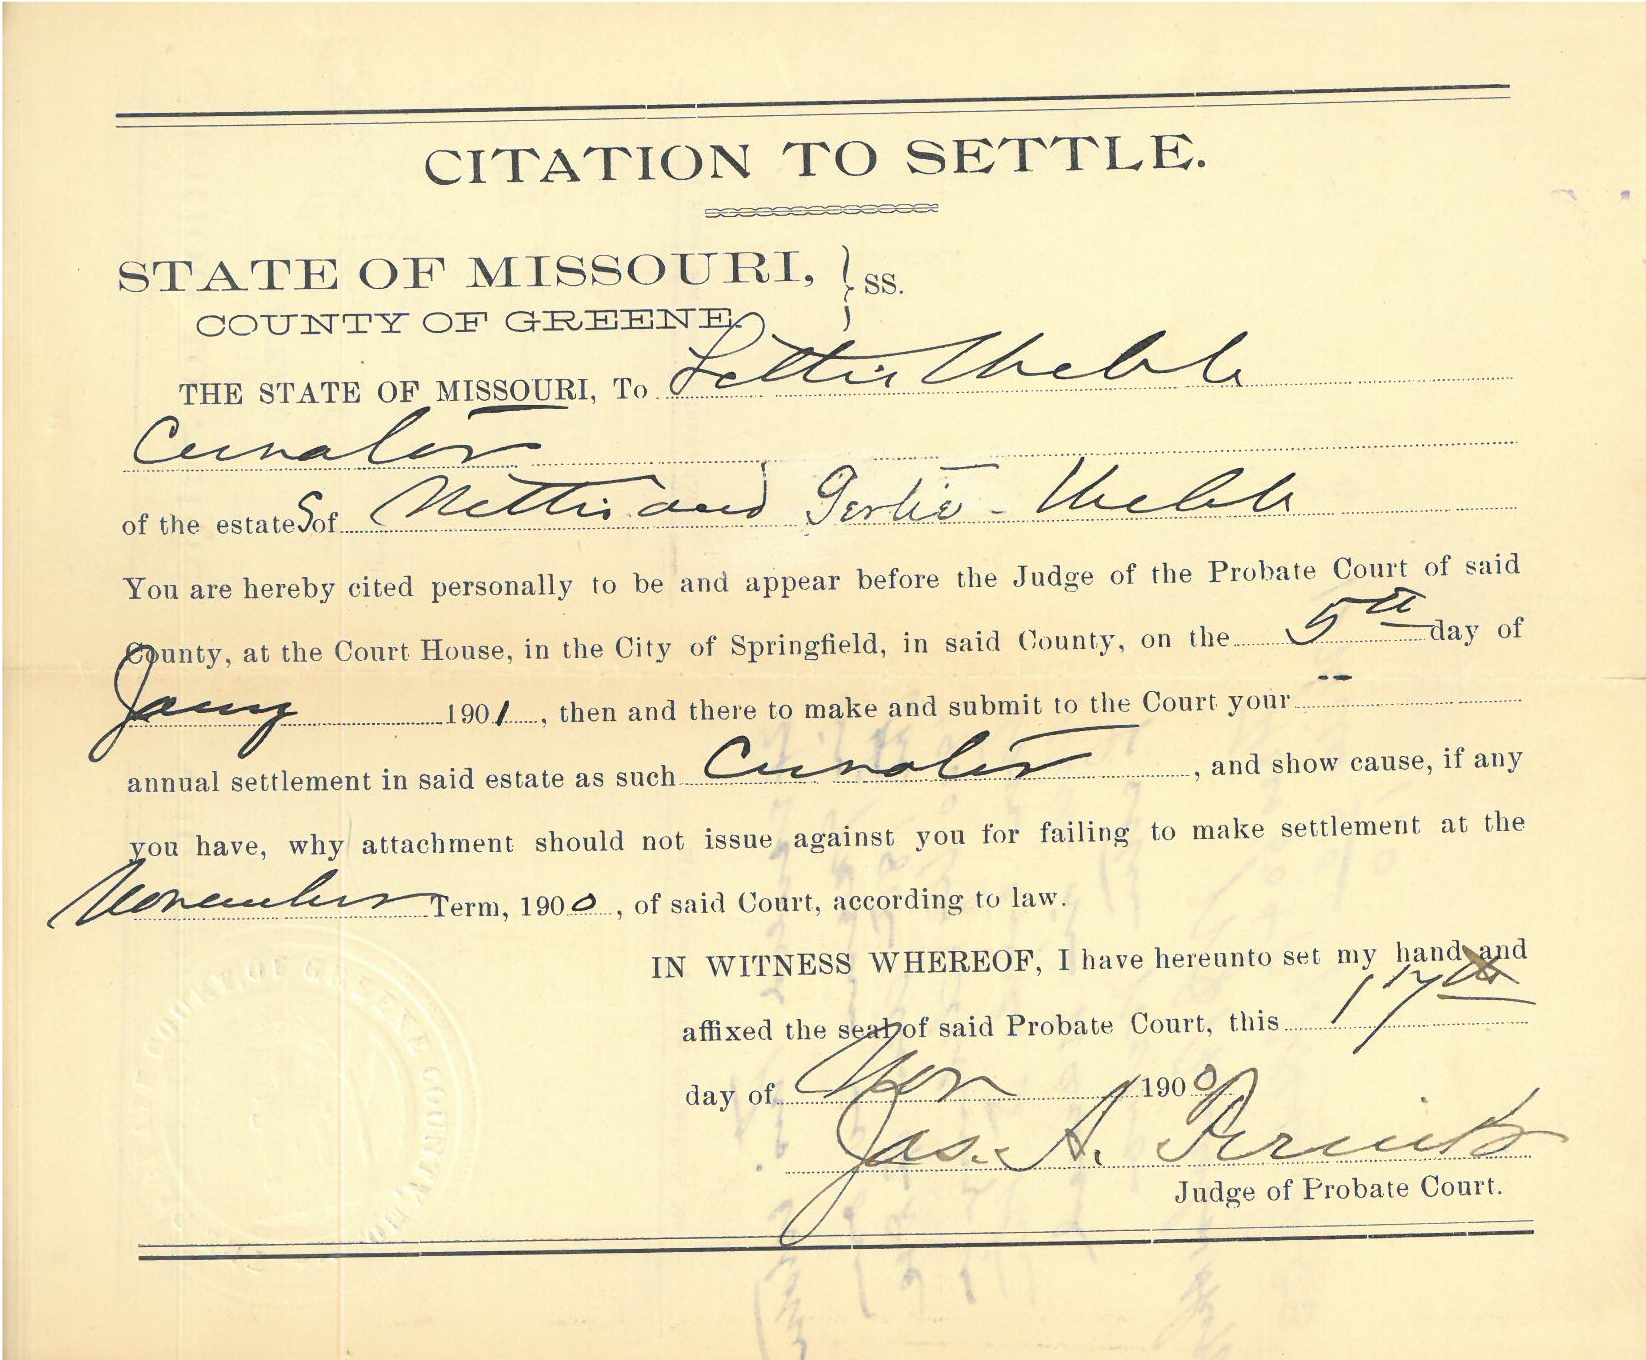 CITATION TO SETTLE.
STATE OF MISSOURI, } SS.
COUNTY OF GREENE.
THE STATE OF MISSOURI, To Lettie Webb
Curator
of the estateS of Nettie and Gertie - Webb
You are hereby cited personally to be and appear before the Judge of the Probate Court of said
County, at the Court House, in the City of Springfield, in said County, on the 5th day of
Jany 1901, then and there to make and submit to the Court your --
annual settlement in said estate as such Curator, and show cause, if any
you have, why attachment should not issue against you for failing to make settlement at the
November Term, 1900, of said Court, according to law.
IN WITNESS WHEREOF, I have hereunto set my hand and
affixed the seal of said Probate Court, this 17th
day of Nov 1900
Jas. A.
Judge of Probate Court.
COURT OF GREENE COUNTY, MO.